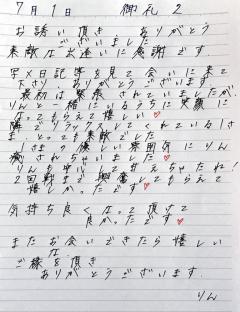 7月1日　御礼2
お誘い頂き　ありがとう
ございました
素敵な出逢いに感謝です
写メ日記等を見て会いに来て
下さり ありがとうございます
最初は緊張されていましたが
りんと一緒にいるうちに笑顔に
なってもらえて嬉しい
隣でリラックスしてくれているIさ
まとっても素敵でした
Iさまの優しい雰囲気にりん
癒されちゃいました
りんの中に
2回戦まで興奮してもらえて
嬉しかったです
気持ち良くなって頂けて
良かったです
またお会いできたら嬉しい
な
ご縁を頂き
ありがとうございます.
りん